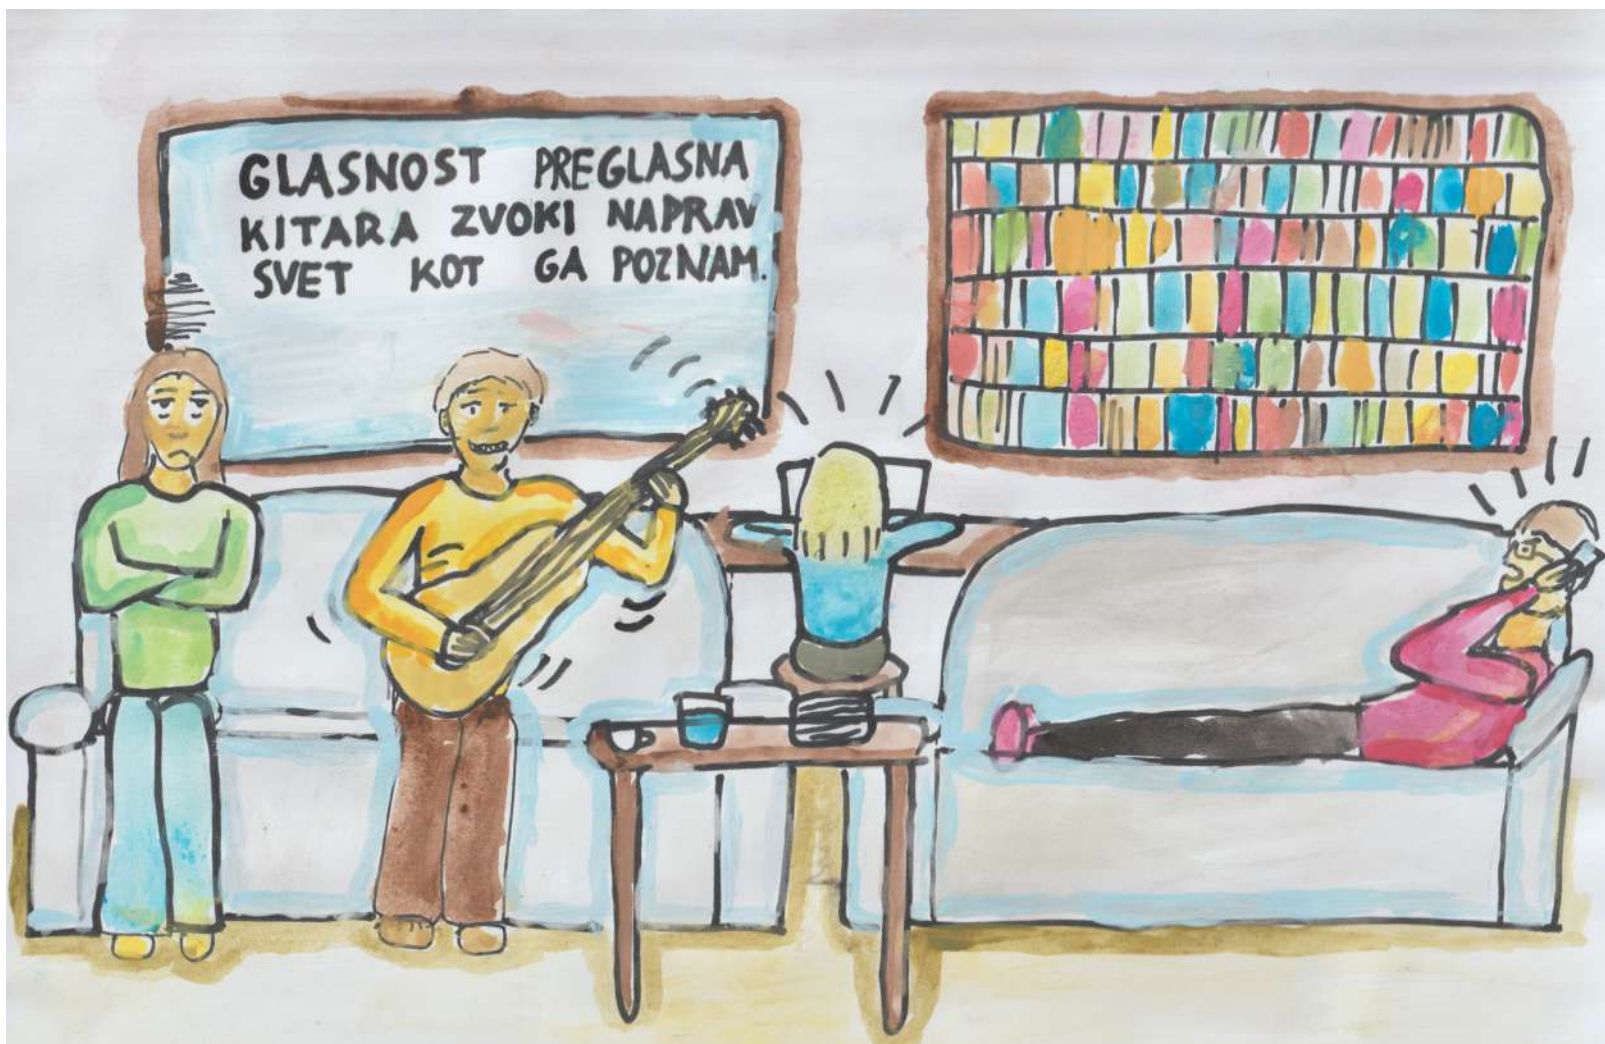 GLASNOST PREGLASNA
KITARA ZVOKI NAPRAV
SVET KOT GA POZNAM.